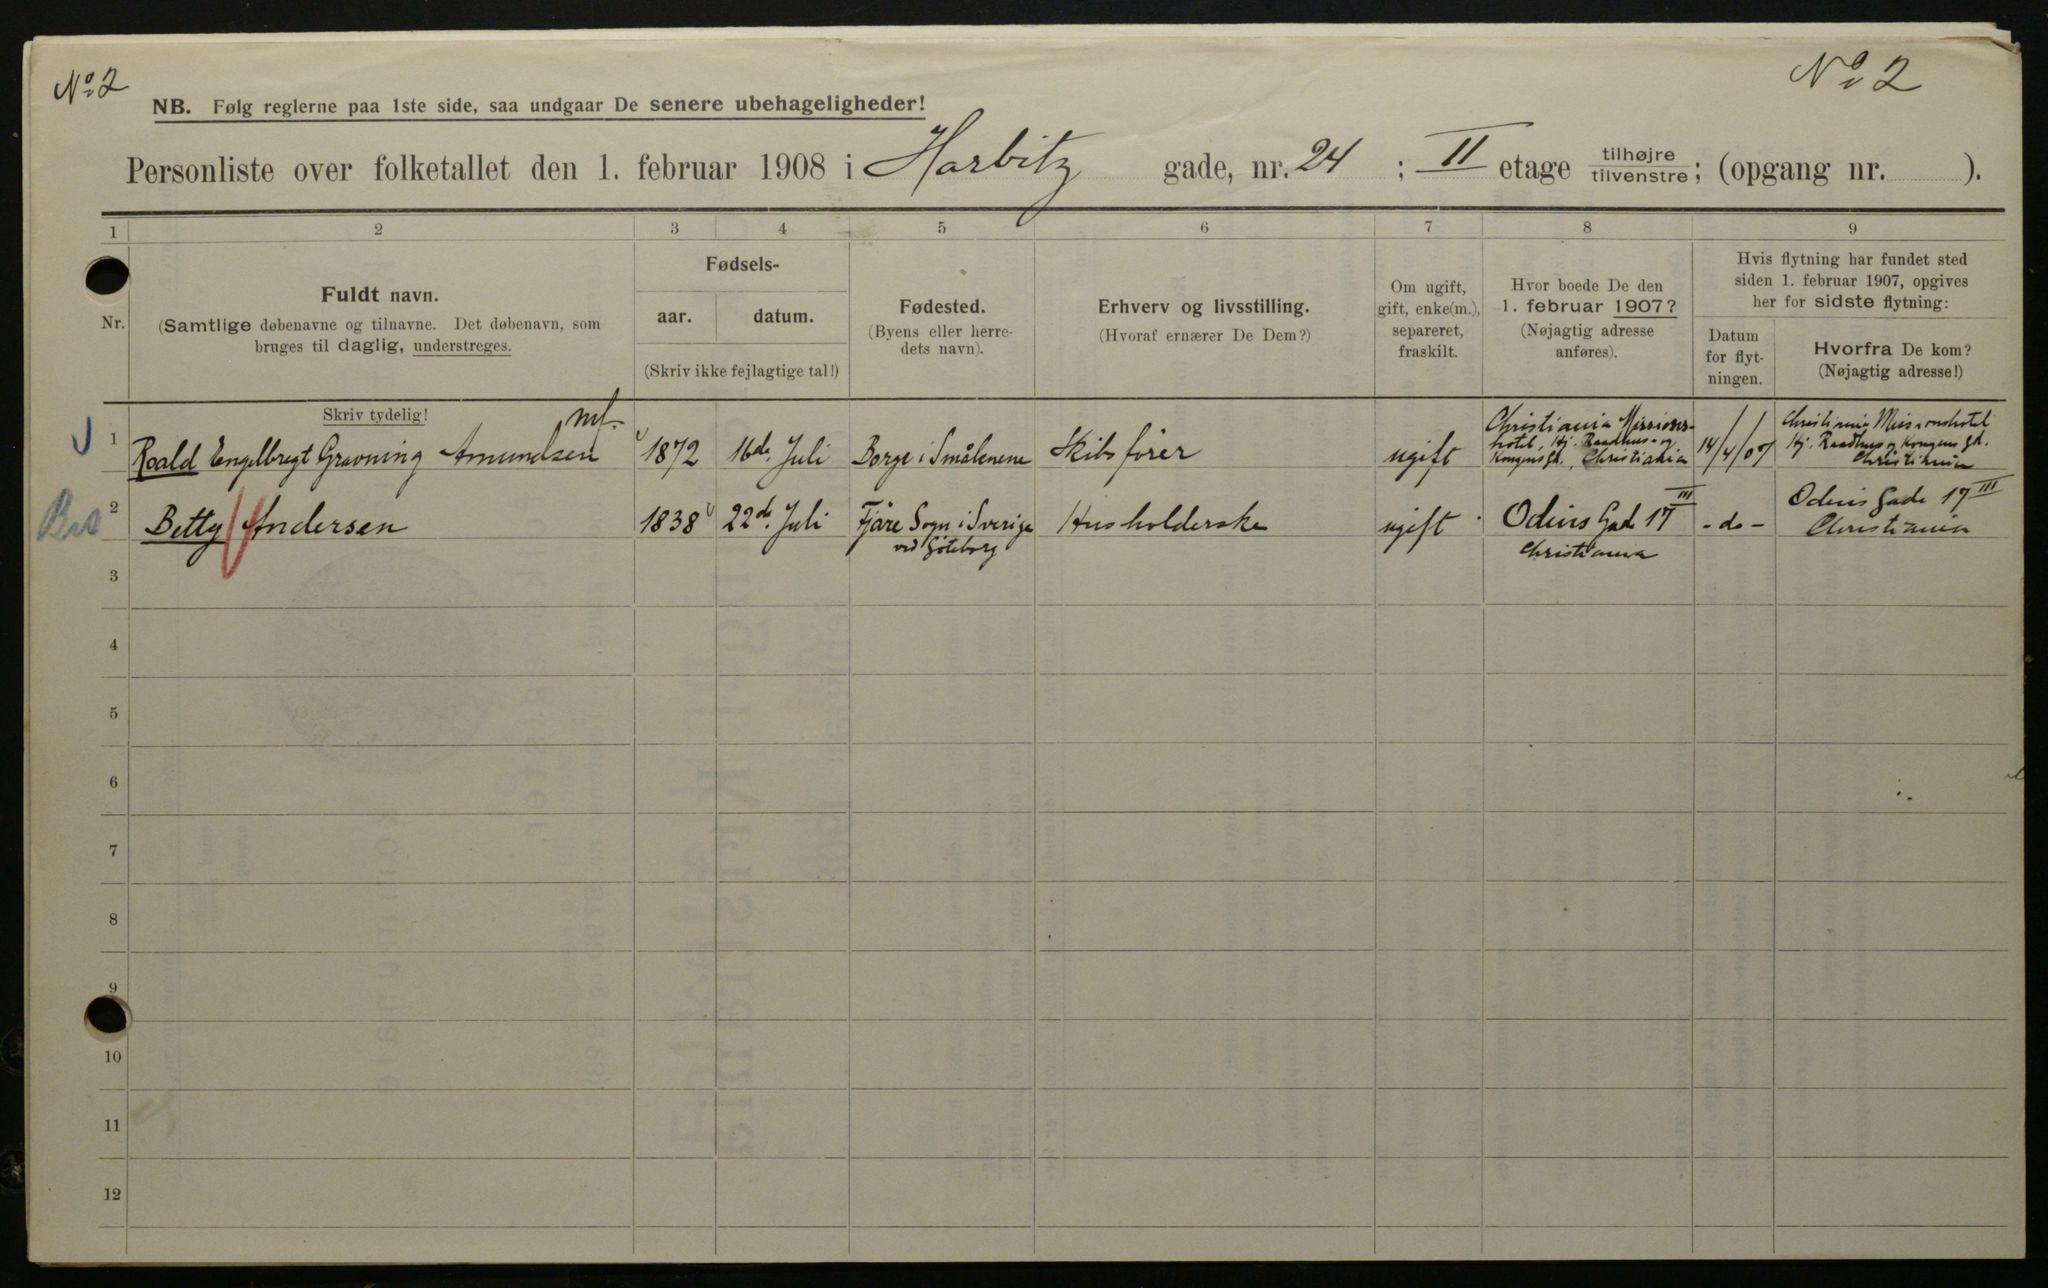 No 2
No 2
NB. Følg reglerne paa 1ste side, saa undgaar De senere ubehageligheder!
Personliste over folketallet den 1. februar 1908 i Harbitz gade, nr. 24 ; II etage tilhøjre tilvenstre; (opgang nr. ).
1 2 3 4 5 6 7 8 9
Nr.
Fuldt navn.
(Samtlige døbenavne og tilnavne. Det døbenavn, som
bruges til daglig, understreges.
Fødsels-
aar. datum.
(Skriv ikke fejlagtige tal!)
Fødested.
(Byens eller herre-
dets navn).
Erhverv og livsstilling.
(Hvoraf ernærer De Dem?)
Om ugift,
gift, enke(m.),
separeret,
fraskilt.
Hvor boede De den
1. februar 1907?
(Nøjagtig adresse
anføres).
Hvis flytning har fundet sted
siden 1. februar 1907, opgives
her for sidste flytning:
Datum
for flyt-
ningen.
Hvorfra De kom?
(Nøjagtig adresse!)
Skriv tydelig!
mf.
1 Roald Engelbregt Gravning Amundsen 1872 16de Juli Borge i Smålenene Skibsfører ugift
Christiania Missions-
hotel, Hj. Raadhus- og
Kongens Gd., Christiania
14/4/07
Christiania Missionshotel
Hj. Raadhus og Kongens Gd.
Christiania
2 Betty Andersen 1838 22de Juli Fjäre Sogn i Sverige
ved Göteborg
Husholderske ugift
Odins Gade 17 III
Christiania
- do -
Odins Gade 17 III
Christiania
3
4
5
6
7
8
9
10
11
12